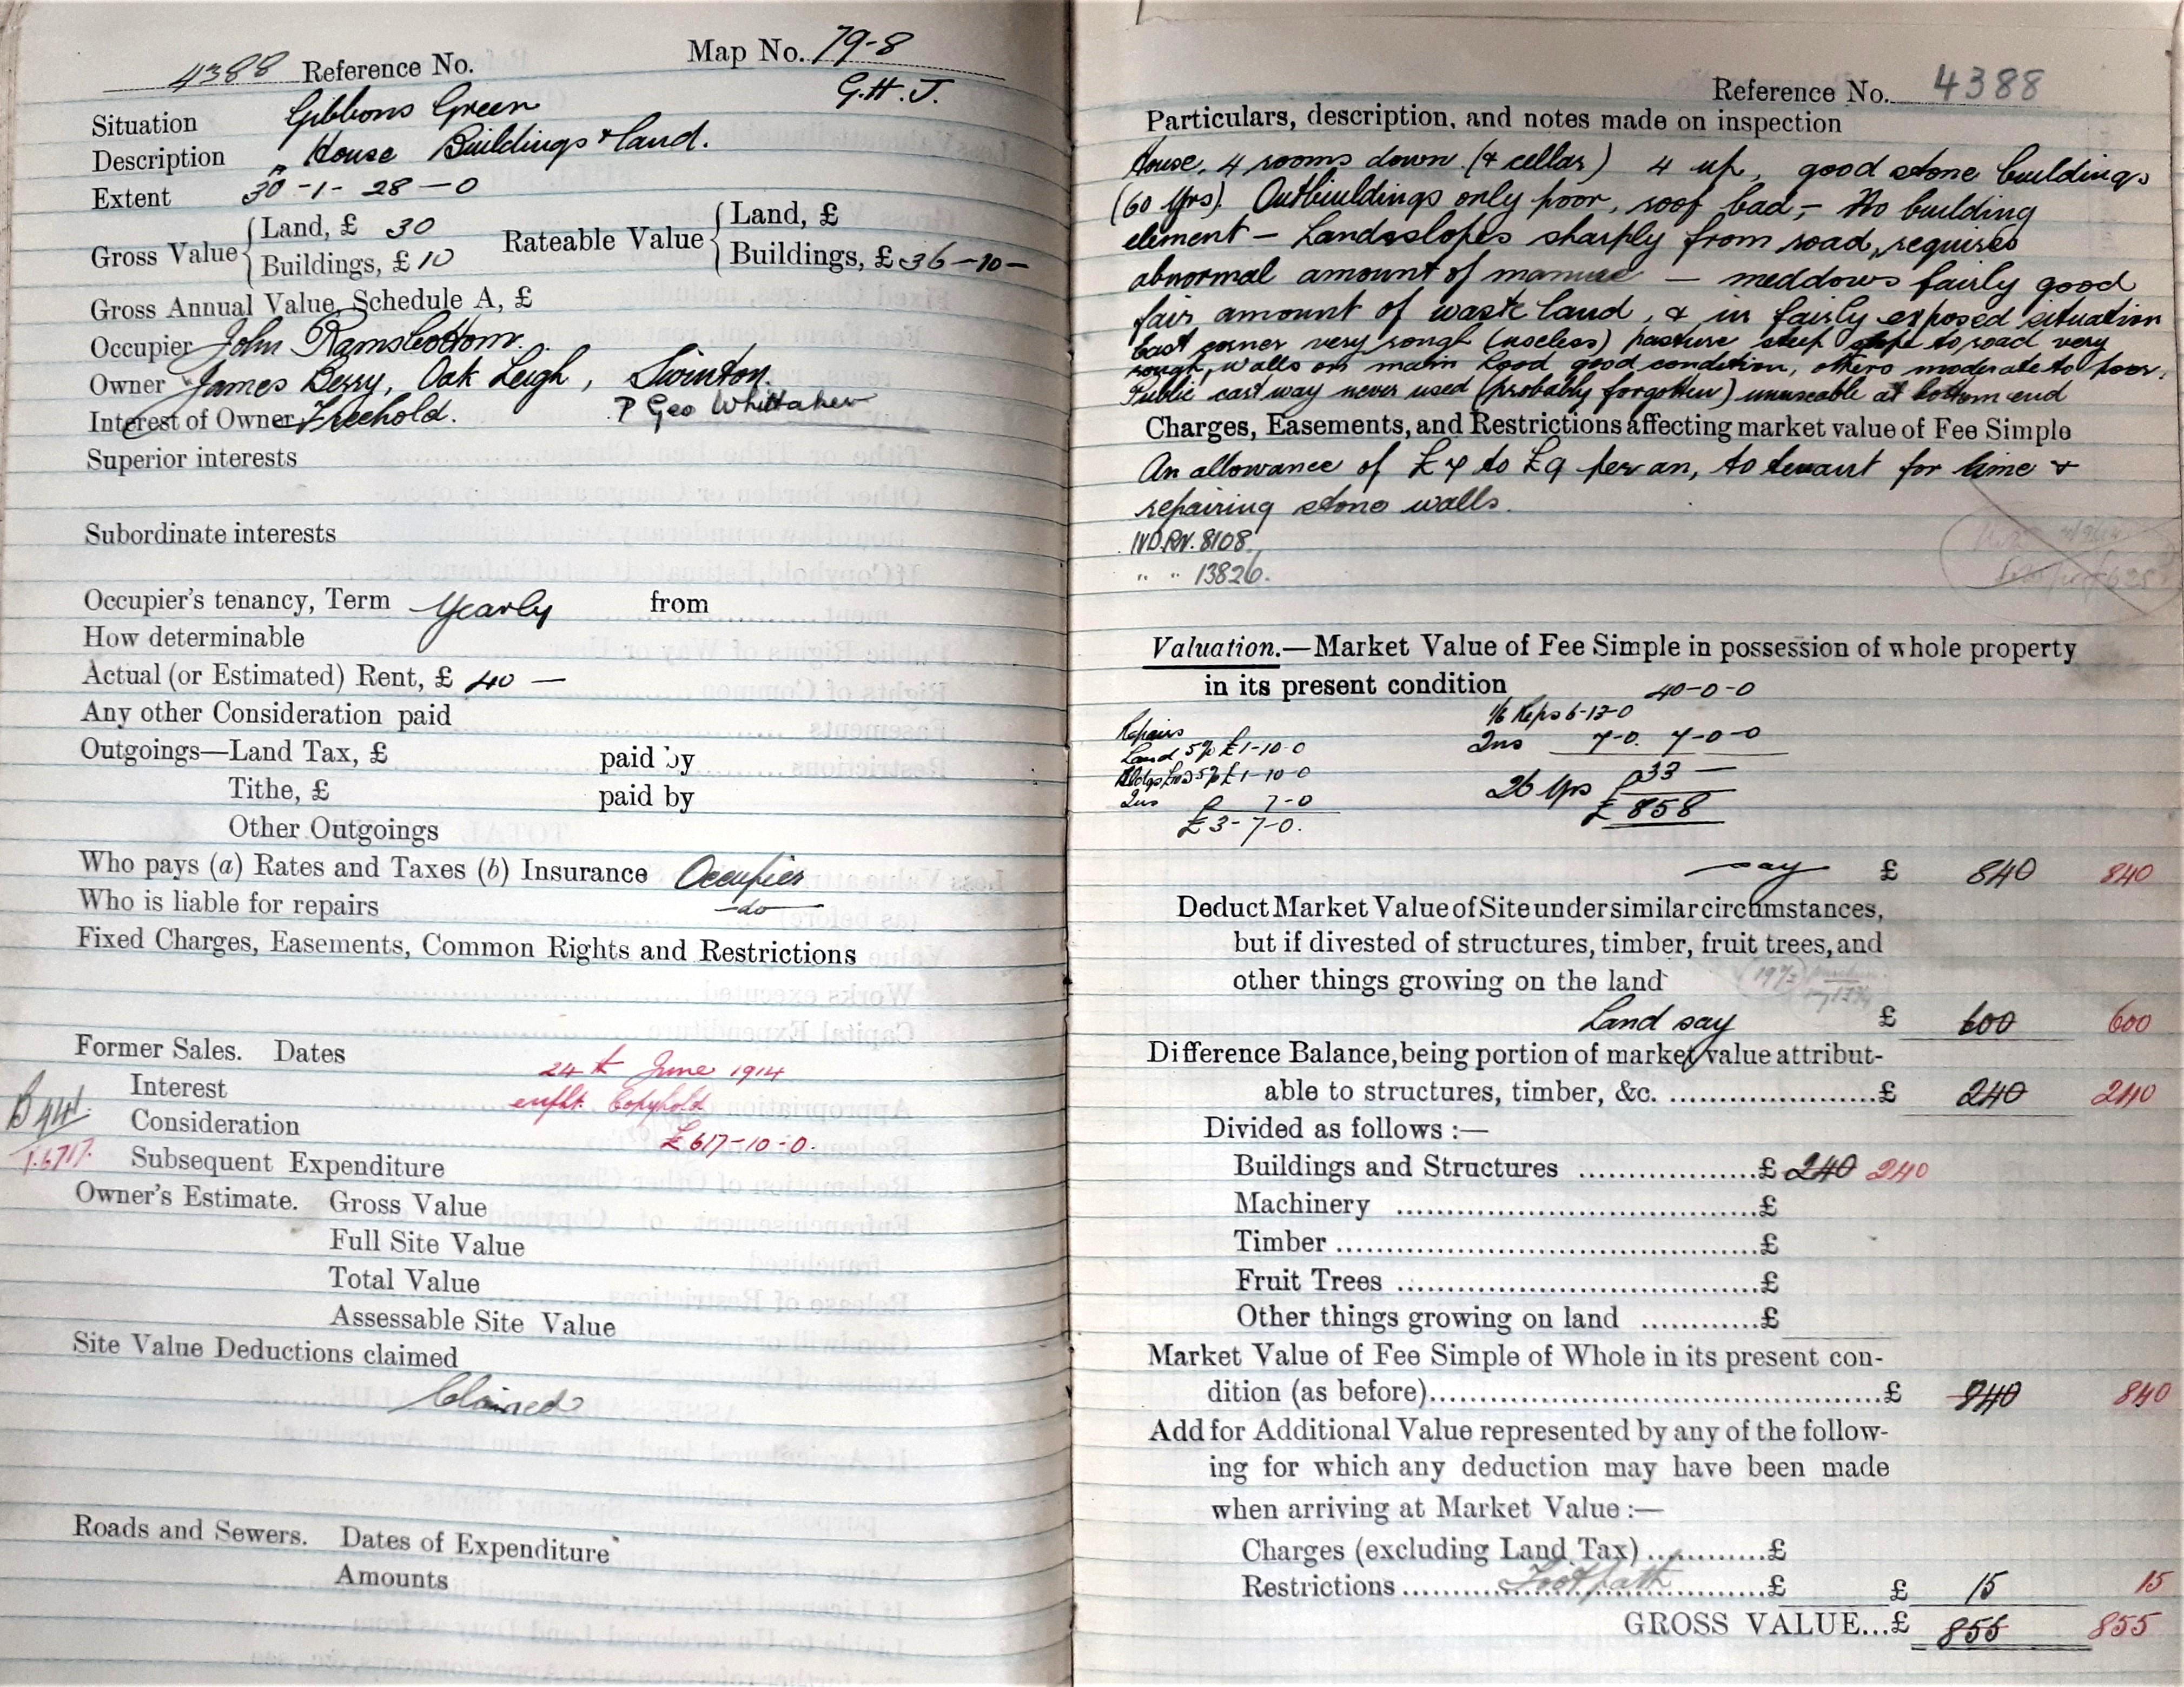 4388 Reference No. Map No. 79-8
G.H.J.
Situation Gibbons Green
Description House Buildings & land.
Extent 30-1-28-0
Gross Value { Land, £ 30 Rateable Value { Land, £
Buildings, £ 10 Buildings, £ 36-10-
Gross Annual Value, Schedule A, £
Occupier John Ramsbottom.
Owner James Berry, Oak Leigh, Swinton.
Interest of Owner Freehold. P Geo Whittaker
Superior interests
Subordinate interests
Occupier's tenancy, Term Yearly from
How determinable
Actual (or Estimated) Rent, £ 40 —
Any other Consideration paid
Outgoings—Land Tax, £ paid by
Tithe, £ paid by
Other Outgoings
Who pays (a) Rates and Taxes (b) Insurance Occupier
Who is liable for repairs —do—
Fixed Charges, Easements, Common Rights and Restrictions
Former Sales. Dates 24th June 1914
Interest Copyhold
Consideration £617-10-0.
Subsequent Expenditure
Owner's Estimate. Gross Value
Full Site Value
Total Value
Assessable Site Value
Site Value Deductions claimed
Claimed
Roads and Sewers. Dates of Expenditure
Amounts
Reference No. 4388
Particulars, description, and notes made on inspection
House, 4 rooms down (& cellar) 4 up, good stone buildings
(60 Yrs). Outbuildings only poor, roof bad, – No building
element – Land slopes sharply from road, requires
abnormal amount of manure — meddows fairly good
fair amount of waste land, & in fairly exposed situation
East corner very rough (useless) pasture steep slope to road very
rough, walls on main Road good condition, others moderate to poor.
Public cart way never used (probably forgotten) unuseable at bottom end
Charges, Easements, and Restrictions affecting market value of Fee Simple
An allowance of £7 to £9 per an, to tenant for lime &
repairing stone walls.
IVD.RV. 8108
" " 13826.
Valuation.—Market Value of Fee Simple in possession of whole property
in its present condition 40-0-0
Repairs 1/6 Reps 6-13-0
Land 5% £1-10-0 Ins 7-0. 7-0-0
5% £1-10-0 £33 —
Ins 7-0 26 Yrs £858
£3-7-0.
say £ 840 840
Deduct Market Value of Site under similar circumstances,
but if divested of structures, timber, fruit trees, and
other things growing on the land
Land say £ 600 600
Difference Balance, being portion of market value attribut-
able to structures, timber, &c. ........................£ 240 240
Divided as follows :—
Buildings and Structures ....................£ 240 240
Machinery ....................................£
Timber ..........................................£
Fruit Trees ....................................£
Other things growing on land ............£
Market Value of Fee Simple of Whole in its present con-
dition (as before)..............................................£ 840 840
Add for Additional Value represented by any of the follow-
ing for which any deduction may have been made
when arriving at Market Value :—
Charges (excluding Land Tax) ............£
Restrictions ........Footpath........£ £ 15 15
GROSS VALUE...£ 855 855